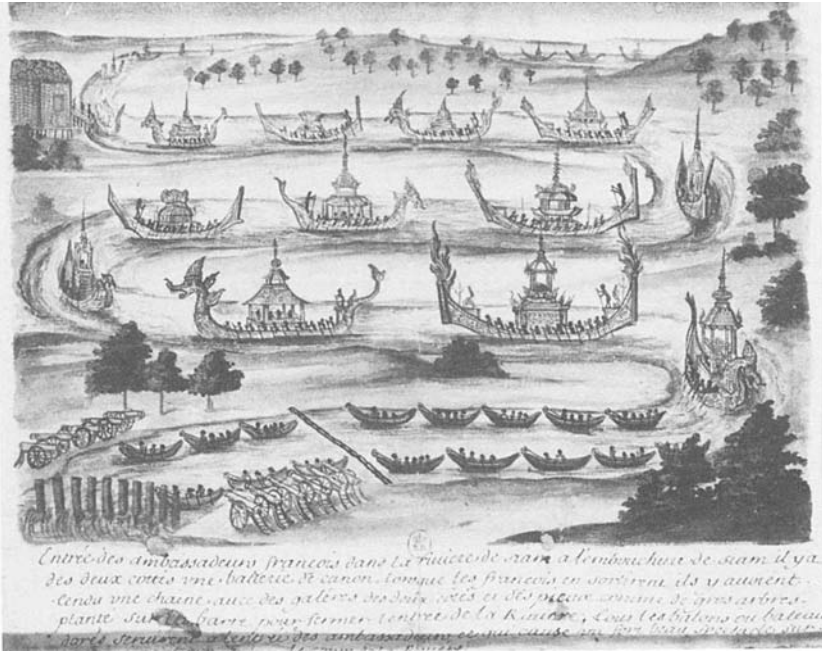 Entrée des ambassadeurs francois dans la riviere de siam a l'embouchure de siam il y a
des deux cotés vne batterie de canon, lorsque les francois en sortirent ils y auoient
tendu vne chaine auec des galeres des deux cotés et des pieux comme de gros arbres
planté sur la barre pour fermer l'entrée de la Riuiere, tous les balons ou bateau
dorés seruirent a l'entrée des ambassadeurs ce qui cause vn fort beau spectacle sur
Riuiere